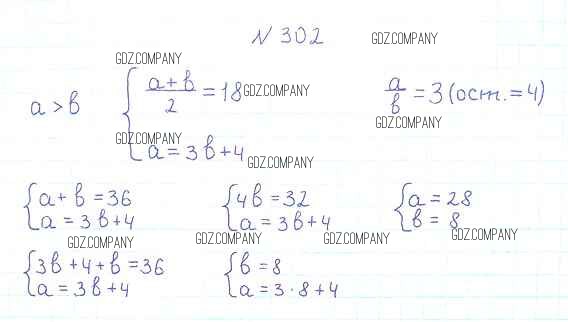 N 302
GDZ.COMPANY
GDZ.COMPANY
a > b
{ (a + b)/2 = 18
GDZ.COMPANY
a/b = 3 (ост. = 4)
GDZ.COMPANY
GDZ.COMPANY
a = 3b + 4
GDZ.COMPANY
{ a + b = 36
a = 3b + 4
{ 4b = 32
a = 3b + 4
{ a = 28
b = 8
GDZ.COMPANY
GDZ.COMPANY
GDZ.COMPANY
GDZ.COMPANY
{ 3b + 4 + b = 36
a = 3b + 4
{ b = 8
a = 3 · 8 + 4